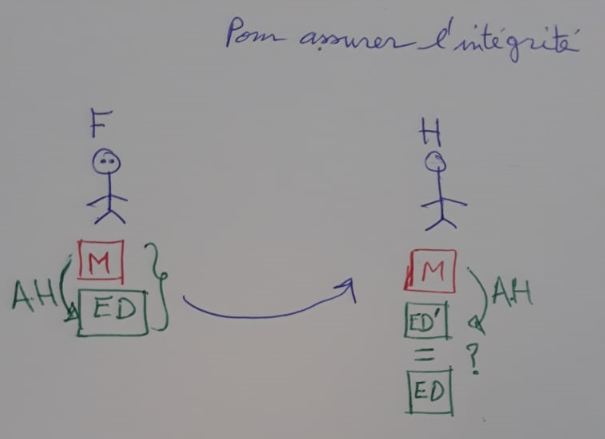 Pour assurer l'intégrité
F
H
M
AH
ED
M
AH
ED'
= ?
ED